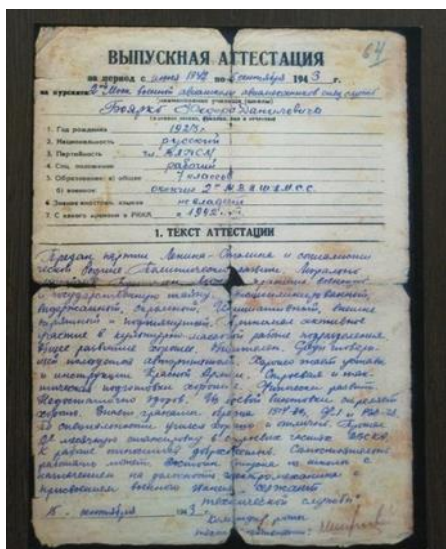 64
ВЫПУСКНАЯ АТТЕСТАЦИЯ
на период с июня 1942 по сентября 1943 г.
на курсанта 2ой Моск военной авиашколы авиамехаников спец службы
(наименование училища (школы)
Боярко Федора Даниловича
(военное звание, фамилия, имя и отчество)
1. Год рождения 1923 г.
2. Национальность русский
3. Партийность чл. ВЛКСМ
4. Соц. положение рабочий
5. Образование: а) общее 7 классов
б) военное: окончил 2ю М.В.А.Ш.А.М.С.С.
6. Знание иностран. языков не владеет
7. С какого времени в РККА с 1942 г.
1. ТЕКСТ АТТЕСТАЦИИ
Предан партии Ленина-Сталина и социалисти
ческой Родине. Политически развит. Морально
военную
и государственную тайну. дисциплинированный,
выдержанный, скромный. Инициативный, внешне
опрятный и подтянутый. Принимал активное
участие в культурно-массовой работе подразделения
Общее развитие хорошее. Среди товари-
щей пользуется авторитетом. Хорошо знает уставы
и инструкции Красной Армии. Строевая и так-
тическая подготовка хорошие. Физически развит
Недостаточно здоров. Из боевой винтовки стреляет
хорошо. Знает гранаты образца 1914-30, Ф-1 и РГД-33.
По специальности учился хорошо и отлично. Прошел
месячную стажировку в строевых частях ВВСКА.
К работе относился добросовестно. Самостоятельно
работать может. Достоин выпуска из школы с
назначением на должность электромеханика с
присвоением военного звания „сержант
технической службы"
15 сентября 1943 г.
Командир роты
техник-лейтенант: